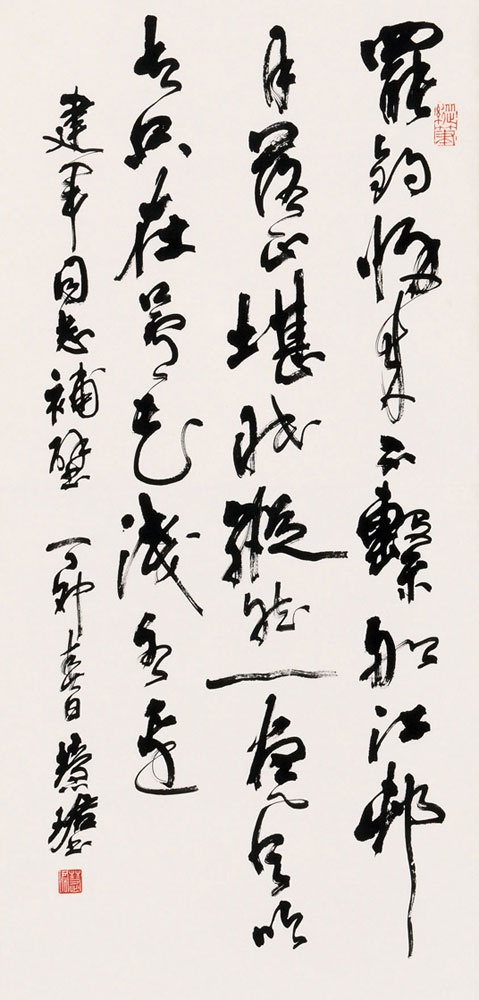 罷釣歸來不繫船江邨
月落正堪眠縱然一夜風吹
去只在蘆花淺水邊
建軍同志補壁 丁卯春日 慧珺